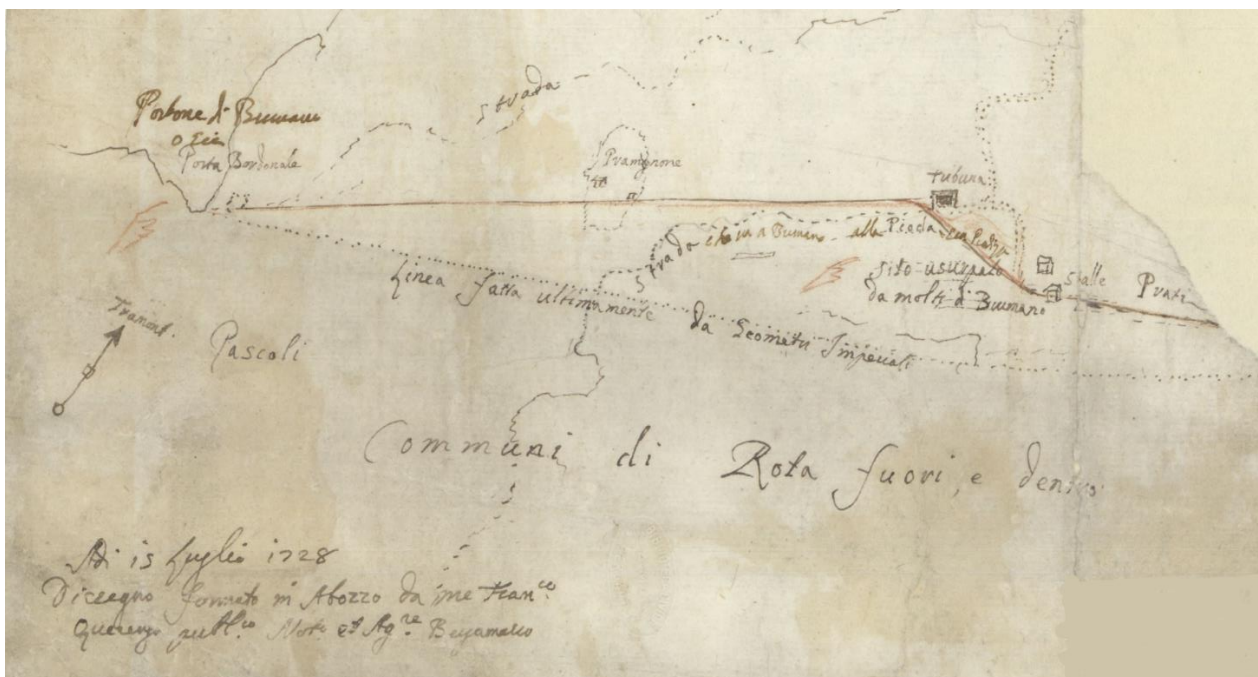 Strada
Portone di Brumano
o sia
Porta Bordenale
Pramgnone
Tubura
strada che va a Brumano alla Pieda
sito usurpato
da molti di Brumano
Stalle
Prati
Linea fatta ultimamente da Geometri Imperiali
Tramont.
Pascoli
Communi di Rota fuori, e dentro
Adi 15 Luglio 1728
Dissegno formato in Abozzo da me Franco
publco Noto et Agre Bergamasco